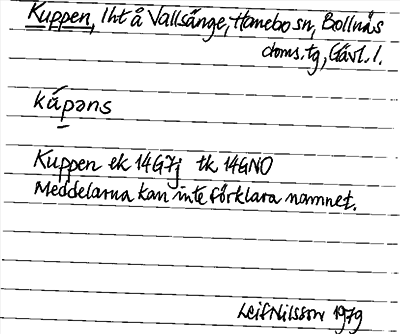 Kuppen, lht å Vallsänge, Hanebo sn, Bollnäs
doms.tg, Gävl. l.
kúpəns
Kuppen ek 14G7j tk 14GNO
Meddelarna kan inte förklara namnet.
Leif Nilsson 1979